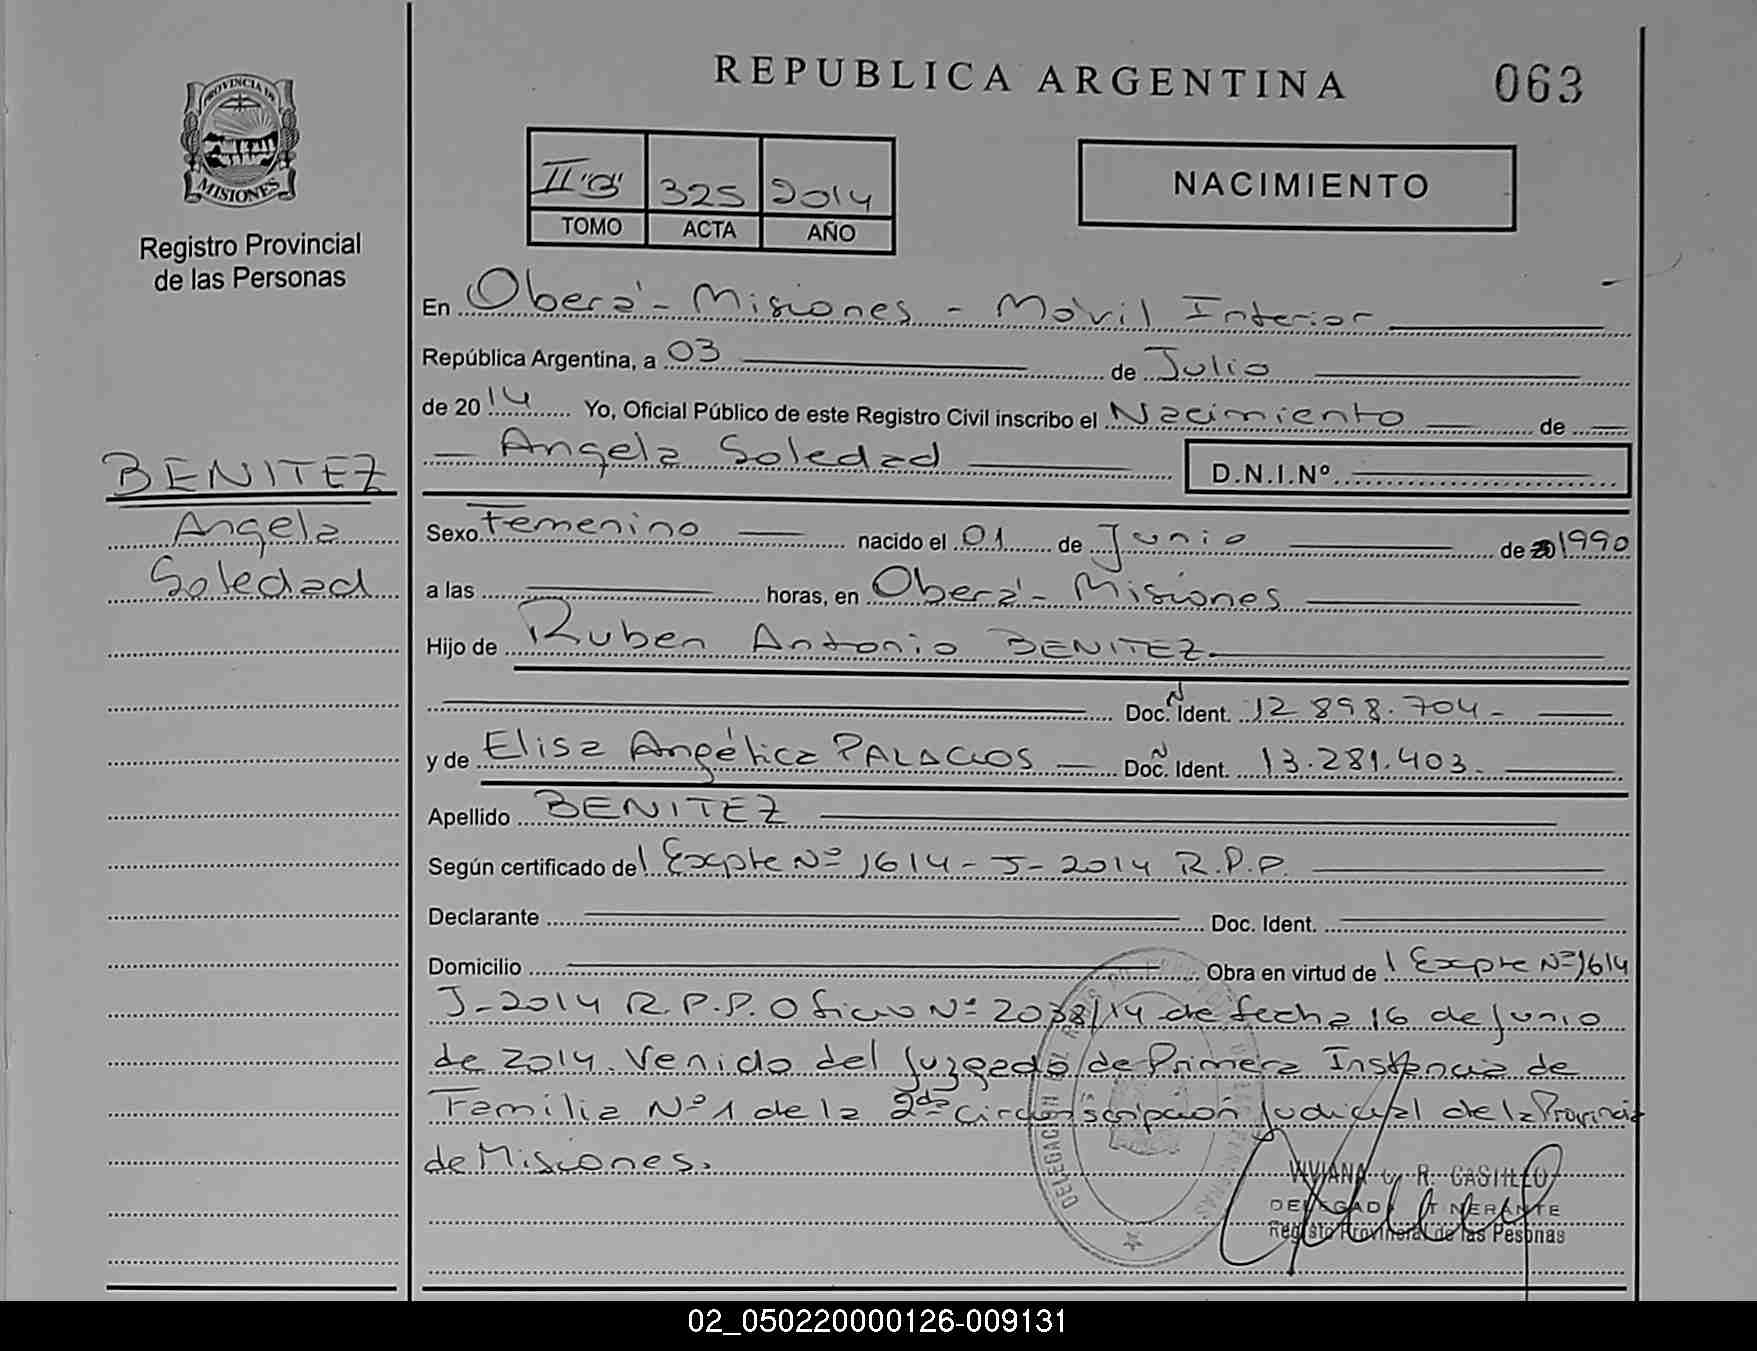 PROVINCIA DE
MISIONES
Registro Provincial
de las Personas
BENITEZ
Angela
Soledad
REPUBLICA ARGENTINA
063
II "B" 325 2014
TOMO ACTA AÑO
NACIMIENTO
En Oberá - Misiones - Móvil Interior
República Argentina, a 03 de Julio
de 2014 Yo, Oficial Público de este Registro Civil inscribo el Nacimiento de
Angela Soledad D.N.I.Nº
Sexo Femenino nacido el 01 de Junio de 1990
a las horas, en Oberá - Misiones
Hijo de Ruben Antonio BENITEZ
Doc. Nº Ident. 12.898.704.-
y de Elisa Angélica PALACIOS Doc. Nº Ident. 13.281.403.
Apellido BENITEZ
Según certificado del Expte Nº 1614-J-2014 R.P.P.
Declarante Doc. Ident.
Domicilio Obra en virtud del Expte Nº 1614
J-2014 R.P.P. Oficio Nº 2038/14 de fecha 16 de Junio
de 2014. Venido del Juzgado de Primera Instancia de
Familia Nº 1 de la 2da Circunscripción Judicial de la Provincia
de Misiones.
DELEGACION
VIVIANA G. R. CASTILLO
DELEGADA ITINERANTE
Registo Provincial de las Pesonas
02_050220000126-009131